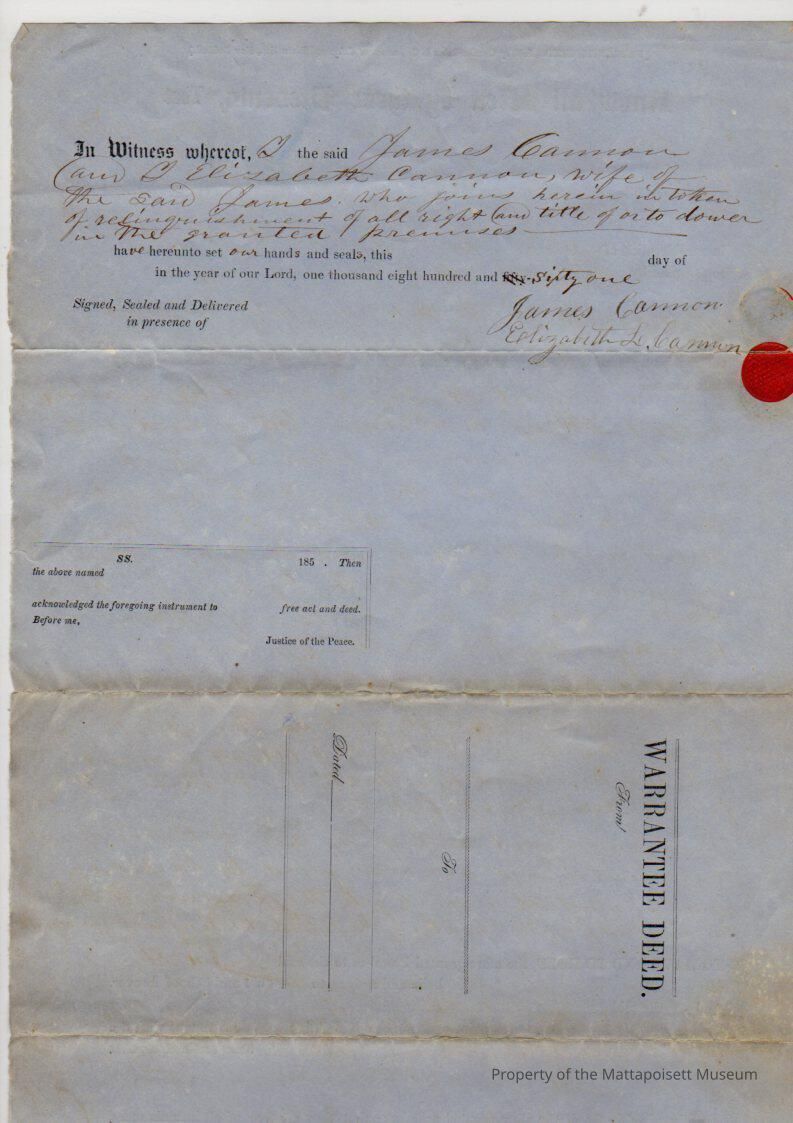 In Witness whereof, I the said James Cannon
(and I Elizabeth Cannon, wife of
the said James. who joins herein in token
of relinquishment of all right and title of or to dower
in the granted premises
have hereunto set our hands and seals, this day of
in the year of our Lord, one thousand eight hundred and fifty-sixty one
Signed, Sealed and Delivered
in presence of
James Cannon
Elizabeth L. Cannon
SS. 185 . Then
the above named
acknowledged the foregoing instrument to free act and deed.
Before me,
Justice of the Peace.
WARRANTEE DEED.
From
To
Dated
Property of the Mattapoisett Museum